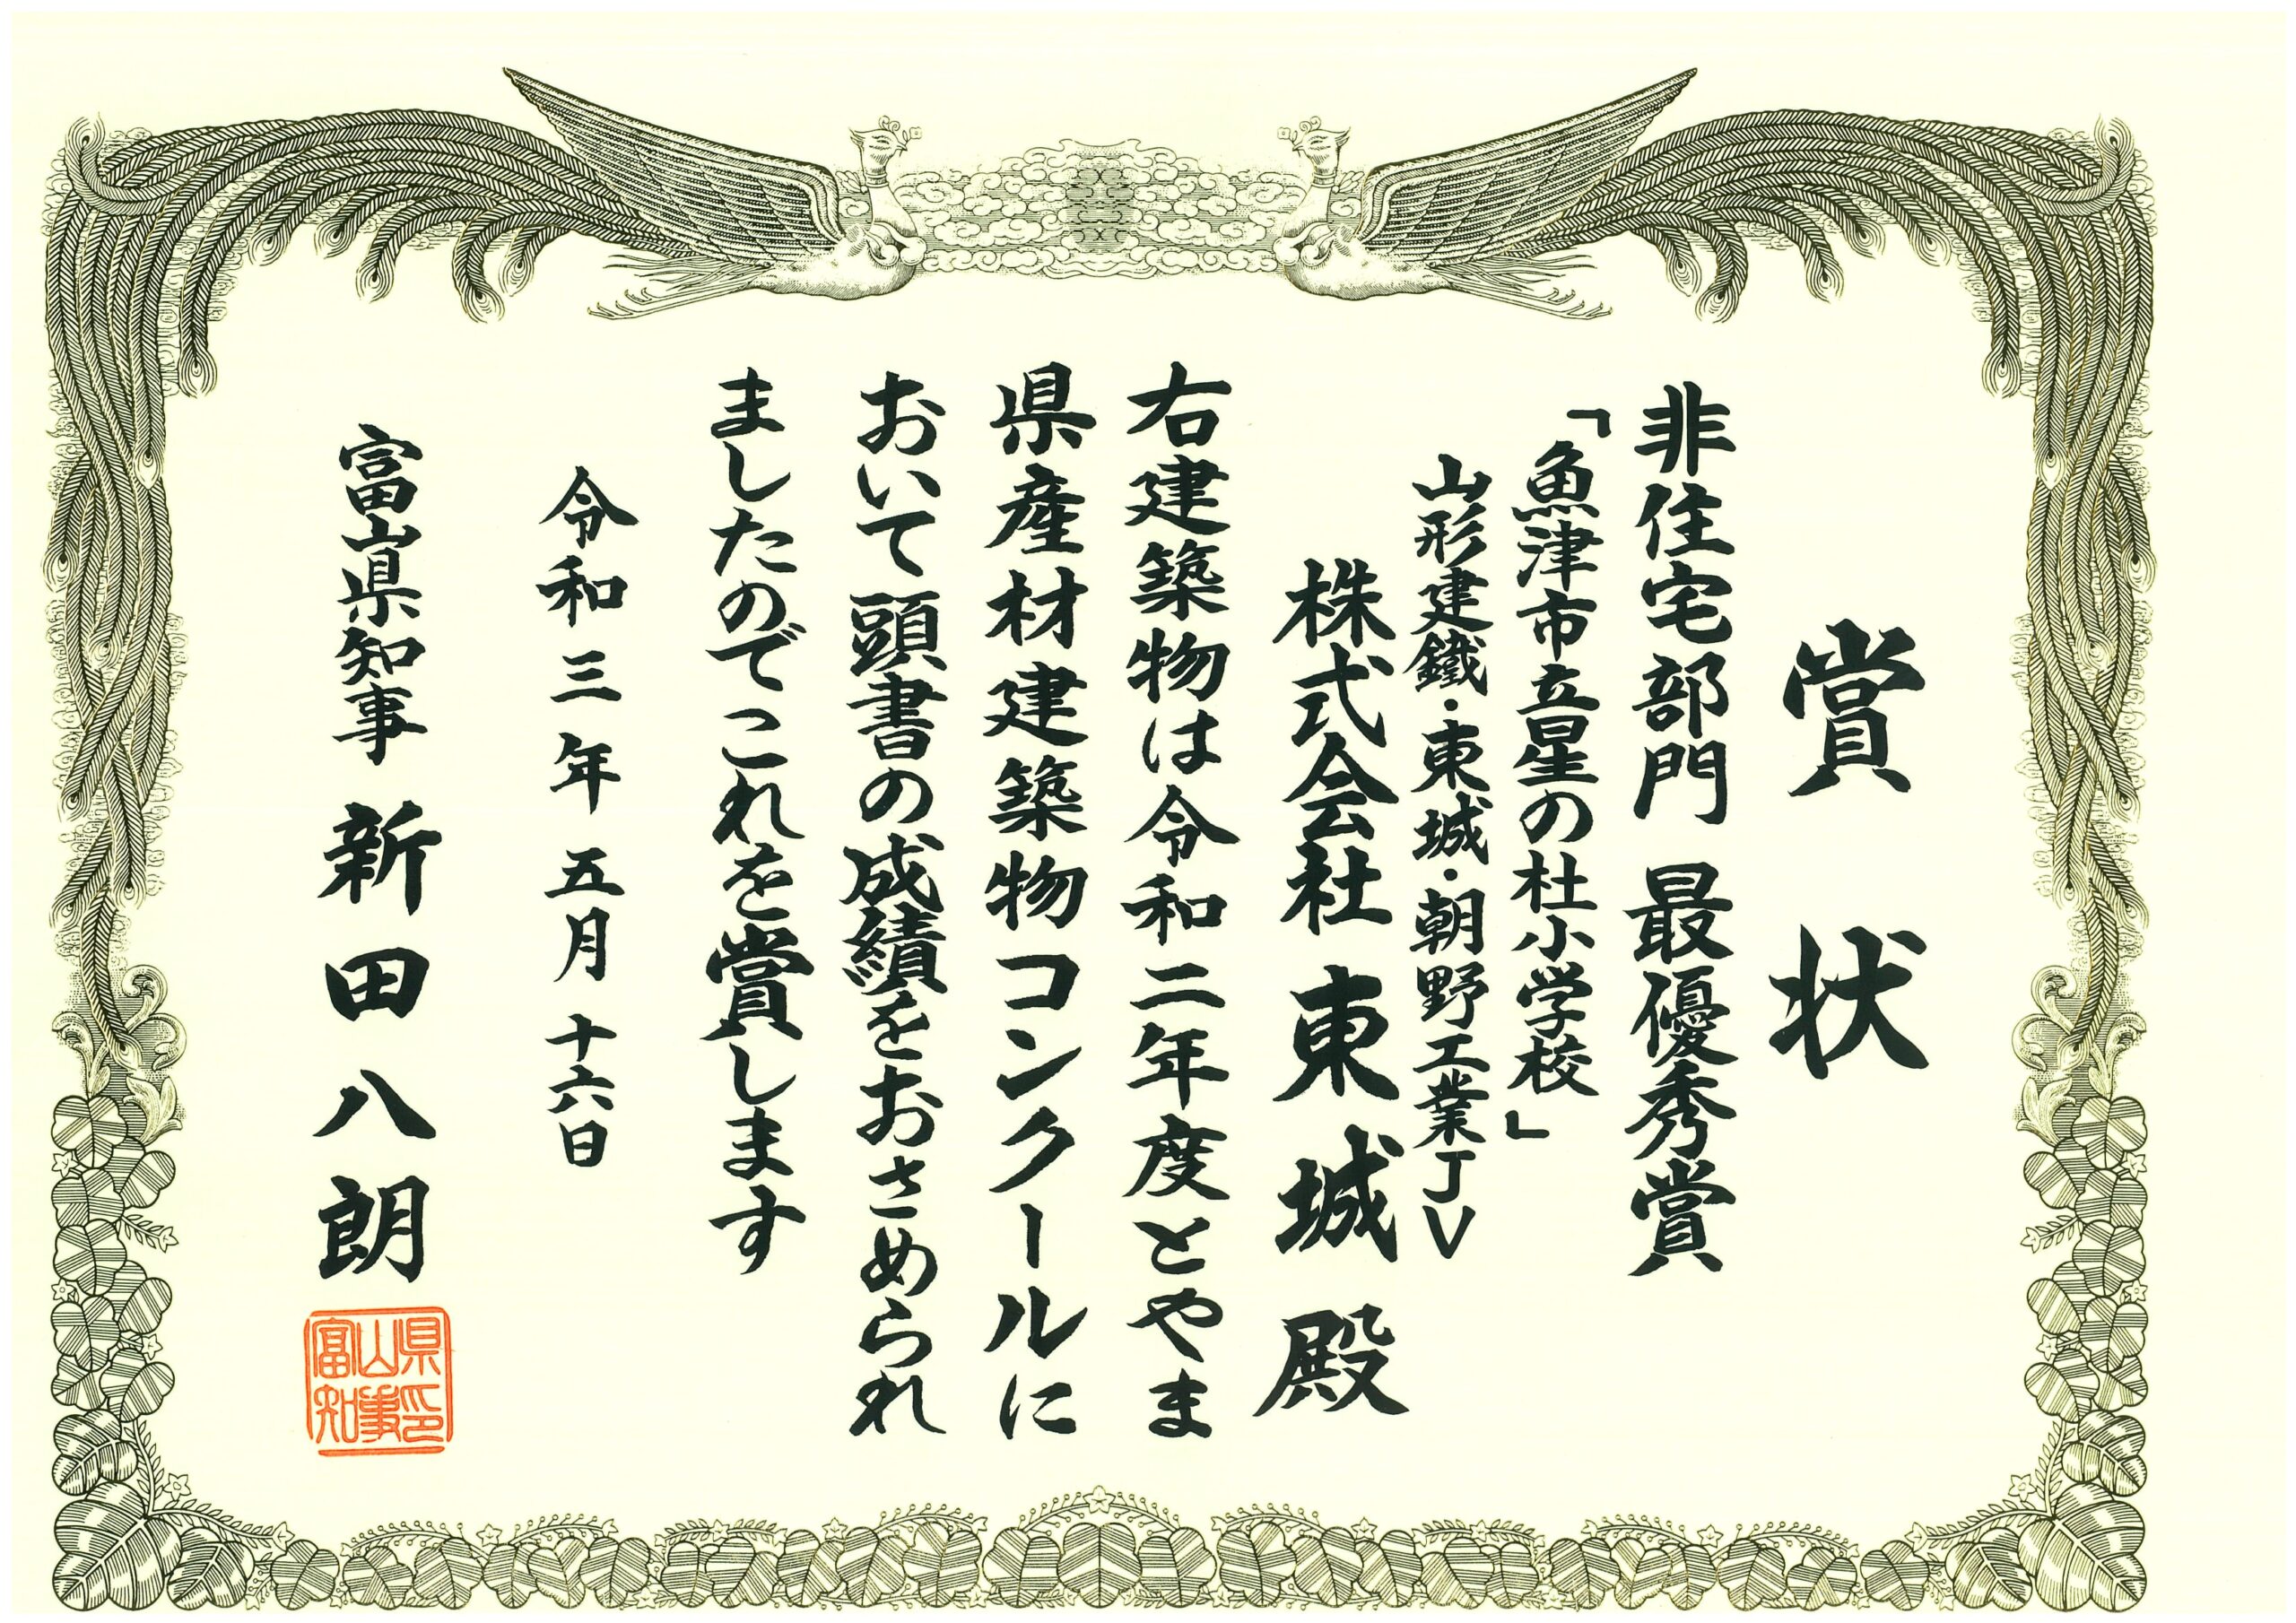 賞状
非住宅部門 最優秀賞
「魚津市立星の杜小学校」
山形建鐵・東城・朝野工業JV
株式会社 東城 殿
右建築物は令和二年度とやま
県産材建築物コンクールに
おいて頭書の成績をおさめられ
ましたのでこれを賞します
令和三年五月十六日
富山県知事 新田八朗
富山県知事印